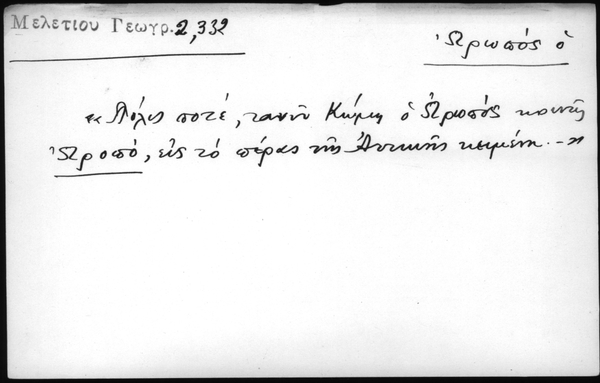 Μελετίου Γεωγρ. 2,332
Ὠρωπός ὁ
"Πόλις ποτέ, τανῦν Κώμη ὁ Ὠρωπός κοινῶς
Ὠροπό, εἰς τό πέρας τῆς Ἀττικῆς κειμένη. -"